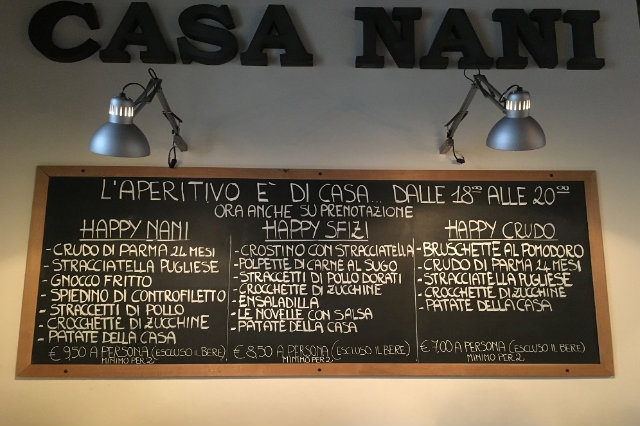 CASA NANI
L'APERITIVO E' DI CASA... DALLE 18:00 ALLE 20:00
ORA ANCHE SU PRENOTAZIONE
HAPPY NANI
- CRUDO DI PARMA 24 MESI
- STRACCIATELLA PUGLIESE
- GNOCCO FRITTO
- SPIEDINO DI CONTROFILETTO
- STRACCETTI DI POLLO
- CROCCHETTE DI ZUCCHINE
- PATATE DELLA CASA
€ 9,50 A PERSONA (ESCLUSO IL BERE)
MINIMO PER 2
HAPPY SFIZI
- CROSTINO CON STRACCIATELLA
- POLPETTE DI CARNE AL SUGO
- STRACCETTI DI POLLO DORATI
- CROCCHETTE DI ZUCCHINE
- ENSALADILLA
- LE NOVELLE CON SALSA
- PATATE DELLA CASA
€ 8,50 A PERSONA (ESCLUSO IL BERE)
MINIMO PER 2
HAPPY CRUDO
- BRUSCHETTE AL POMODORO
- CRUDO DI PARMA 24 MESI
- STRACCIATELLA PUGLIESE
- CROCCHETTE DI ZUCCHINE
- PATATE DELLA CASA
€ 7,00 A PERSONA (ESCLUSO IL BERE)
MINIMO PER 2